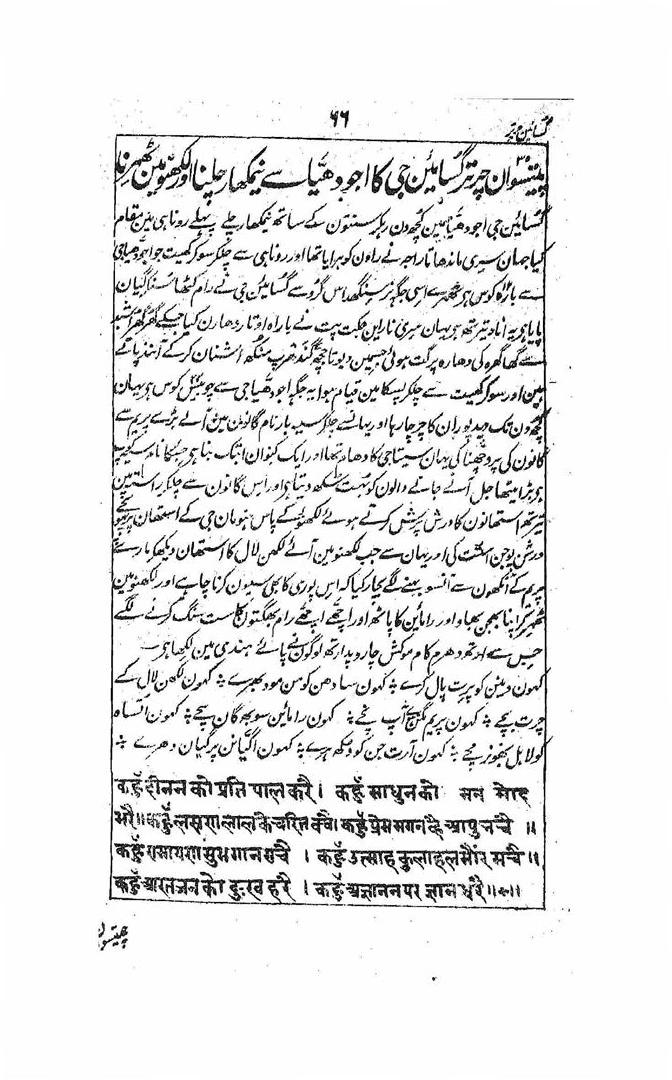 ۶۶
گسائین چرتر
پینتیسوان چرتر گسائین جی کا اجودھیا سے نیمکھار چلنا اور لکھنؤ مین ٹھہرنا
گسائین جی اجودھیا مین کچھ دن رہکر سنتون کے ساتھ نیمکھار چلے پہلے روناہی مین مقام
کیا جہان سری ماندھاتا راجہ نے راون کو ہرایا تھا اور روناہی سے چلکر سوکر کھیت جو اجودھیا جی
سے بارہ کوس ہی ٹھہرے اسی جگہ نرسنگھداس گرو سے گسائین جی نے رام کتھا سنا گیان
پایا ہی یہ آباد تیرتھ ہی یہان سری نارائن جگت پت نے باراہ اوتار دھارن کیا جسکے گھرگھر اشبد
سے گھاگھرہ کی دھارہ پرگٹ ہوئی جسمین دیوتا جچھ گندھرپ منکھ اشنان کرکے آنند پاتے
ہین اور سوکر کھیت سے چلکر پسکا مین قیام ہوا یہ جگہ اجودھیا جی سے چوبیس کوس ہی یہان
کچھ دن تک بید پوران کا چرچا رہا اور یہانسے چلکر سیہ بار نام گانون مین آئے بڑے پریم سے
گانون کی پردچھنا کی یہان سیتا جی کا دھام تھا اور ایک کنوان ابتک بنا ہی جسکا نام سیتاکوپ
ہی بڑا میٹھا جل آنے جانے والون کو بہت سکھ دیتا ہی اور اس گانون سے چلکر راستہ مین
تیرتھ استھانون کا درش پرش کرتے ہوئے لکھنؤ کے پاس ہنومان جی کے استھان پر پہونچے
درشن پوجن استت کی اور یہان سے جب لکھنؤ مین آئے لکھن لال کا استھان دیکھ کر مارے
پریم کے آنکھون سے آنسو بہنے لگے بچار کیا کہ اس پوری کا بھی سیون کرنا چاہیے اور لکھنؤ مین
ٹھہر کر اپنا بھجن بھاو اور راماین کا پاٹھ اور اچھے اچھے رام بھگتون کا ست سنگ کرنے لگے
جس سے ارتھ دھرم کام موکش چار و پدارتھ لوگون نے پائے ہندی مین لکھا ہی۔
کہون دینن کو پرت پال کرے ٭ کہون سادھن کو من مود بھرے ٭ کہون لکھن لال کے
چرت بچے ٭ کہون پریم مگن ہے آپ نچے ٭ کہون راماین سوبھ گان سچے ٭ کہون اتساہ
کولاہل بھونر مچے ٭ کہون آرت جن کو دکھ ہرے ٭ کہون اگیانن پر گیان دھرے ٭
कहुँ दीनन को प्रति पाल करै। कहुँ साधुन को मन मोद
भरै॥ कहुँ लषण लाल के चरित बचै। कहुँ प्रेम मगन ह्वै आपु नचै ॥
कहुँ रामायण सुभ गान सचै । कहुँ उत्साह कुलाहल भौंर मचै॥
कहुँ आरत जन को दुःख हरै । कहुँ अज्ञानन पर ज्ञान धरै॥
چھتیسوان